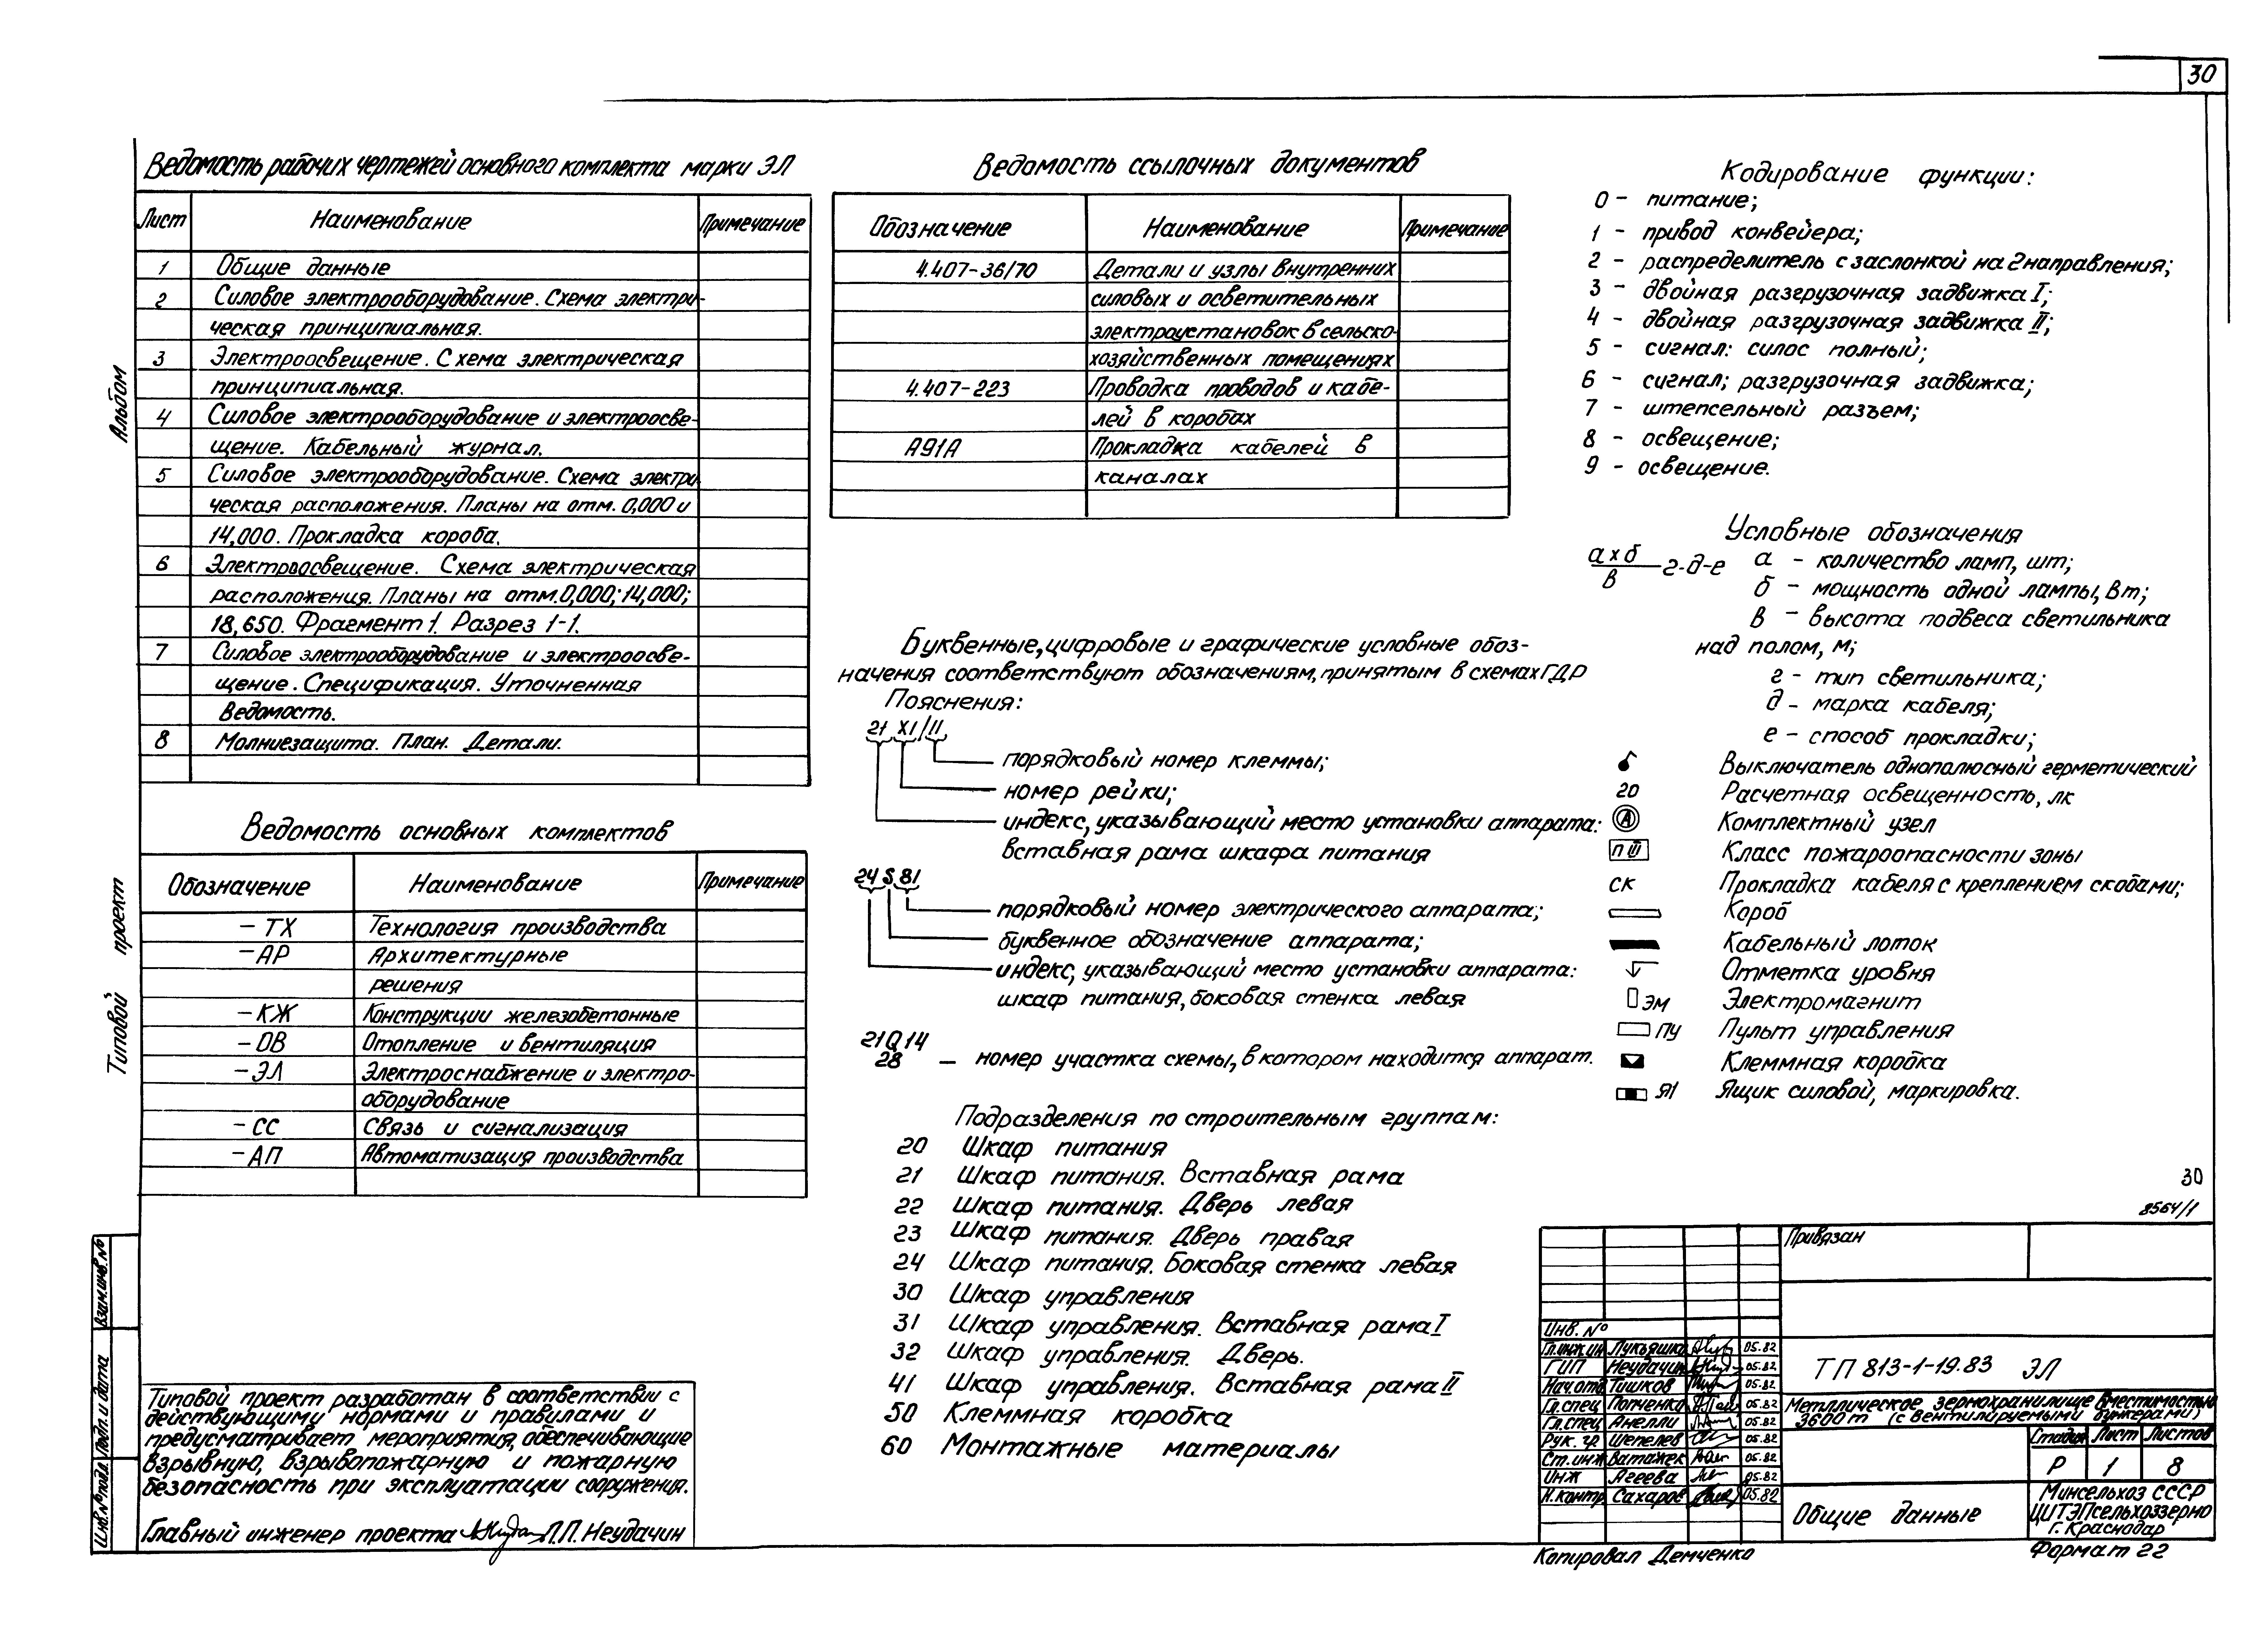 30
Ведомость рабочих чертежей основного комплекта марки ЭЛ
Лист Наименование Примечание
1 Общие данные
2 Силовое электрооборудование. Схема электри-
ческая принципиальная.
3 Электроосвещение. Схема электрическая
принципиальная.
4 Силовое электрооборудование и электроосве-
щение. Кабельный журнал.
5 Силовое электрооборудование. Схема электри-
ческая расположения. Планы на отм. 0,000 и
14,000. Прокладка короба.
6 Электроосвещение. Схема электрическая
расположения. Планы на отм. 0,000; 14,000;
18,650. Фрагмент 1. Разрез 1-1.
7 Силовое электрооборудование и электроосве-
щение. Спецификация. Уточненная
Ведомость.
8 Молниезащита. План. Детали.
Ведомость основных комплектов
Обозначение Наименование Примечание
-ТХ Технология производства
-АР Архитектурные
решения
-КЖ Конструкции железобетонные
-ОВ Отопление и вентиляция
-ЭЛ Электроснабжение и электро-
оборудование
-СС Связь и сигнализация
-АП Автоматизация производства
Альбом
Типовой проект
Взам.инв.№
Подп. и дата
Инв.№ подл.
Типовой проект разработан в соответствии с
действующими нормами и правилами и
предусматривает мероприятия, обеспечивающие
взрывную, взрывопожарную и пожарную
безопасность при эксплуатации сооружения.
Главный инженер проекта Л.П. Неудачин
Ведомость ссылочных документов
Обозначение Наименование Примечание
4.407-36/70 Детали и узлы внутренних
силовых и осветительных
электроустановок в сельско-
хозяйственных помещениях
4.407-223 Проводка проводов и кабе-
лей в коробах
А91А Прокладка кабелей в
каналах
Буквенные, цифровые и графические условные обоз-
начения соответствуют обозначениям, принятым в схемах ГДР
Пояснения:
21 X1/11
порядковый номер клеммы;
номер рейки;
индекс, указывающий место установки аппарата:
вставная рама шкафа питания
24 S 81
порядковый номер электрического аппарата;
буквенное обозначение аппарата;
индекс, указывающий место установки аппарата:
шкаф питания, боковая стенка левая
21Q14
28 – номер участка схемы, в котором находится аппарат.
Подразделения по строительным группам:
20 Шкаф питания
21 Шкаф питания. Вставная рама
22 Шкаф питания. Дверь левая
23 Шкаф питания. Дверь правая
24 Шкаф питания. Боковая стенка левая
30 Шкаф управления
31 Шкаф управления. Вставная рама I
32 Шкаф управления. Дверь.
41 Шкаф управления. Вставная рама II
50 Клеммная коробка
60 Монтажные материалы
Кодирование функции:
0 - питание;
1 - привод конвейера;
2 - распределитель с заслонкой на 2 направления;
3 - двойная разгрузочная задвижка I;
4 - двойная разгрузочная задвижка II;
5 - сигнал: силос полный;
6 - сигнал; разгрузочная задвижка;
7 - штепсельный разъем;
8 - освещение;
9 - освещение.
Условные обозначения
а х б
в
г-д-е
а - количество ламп, шт;
б - мощность одной лампы, Вт;
в - высота подвеса светильника
над полом, м;
г - тип светильника;
д - марка кабеля;
е - способ прокладки;
Выключатель однополюсный герметический
20 Расчетная освещенность, лк
А Комплектный узел
П III Класс пожароопасности зоны
СК Прокладка кабеля с креплением скобами;
Короб
Кабельный лоток
Отметка уровня
ЭМ Электромагнит
ПУ Пульт управления
Клеммная коробка
Я1 Ящик силовой, маркировка.
30
8564/1
Привязан
Инв. №
Гл.инж.ин Лукьяшко 05.82
ГИП Неудачин 05.82
Нач.отд. Тишков 05.82
Гл.спец Попченко 05.82
Гл.спец Анелли 05.82
Рук. гр Шепелев 05.82
Ст.инж Ватажек 05.82
Инж Агеева 05.82
Н.контр. Сахаров 05.82
ТП 813-1-19.83 ЭЛ
Металлическое зернохранилище вместимостью
3600т (с вентилируемыми бункерами)
Стадия Лист Листов
Р 1 8
Общие данные
Минсельхоз СССР
ЦИТЭПсельхоззерно
Г. Краснодар
Копировал Демченко
Формат 22